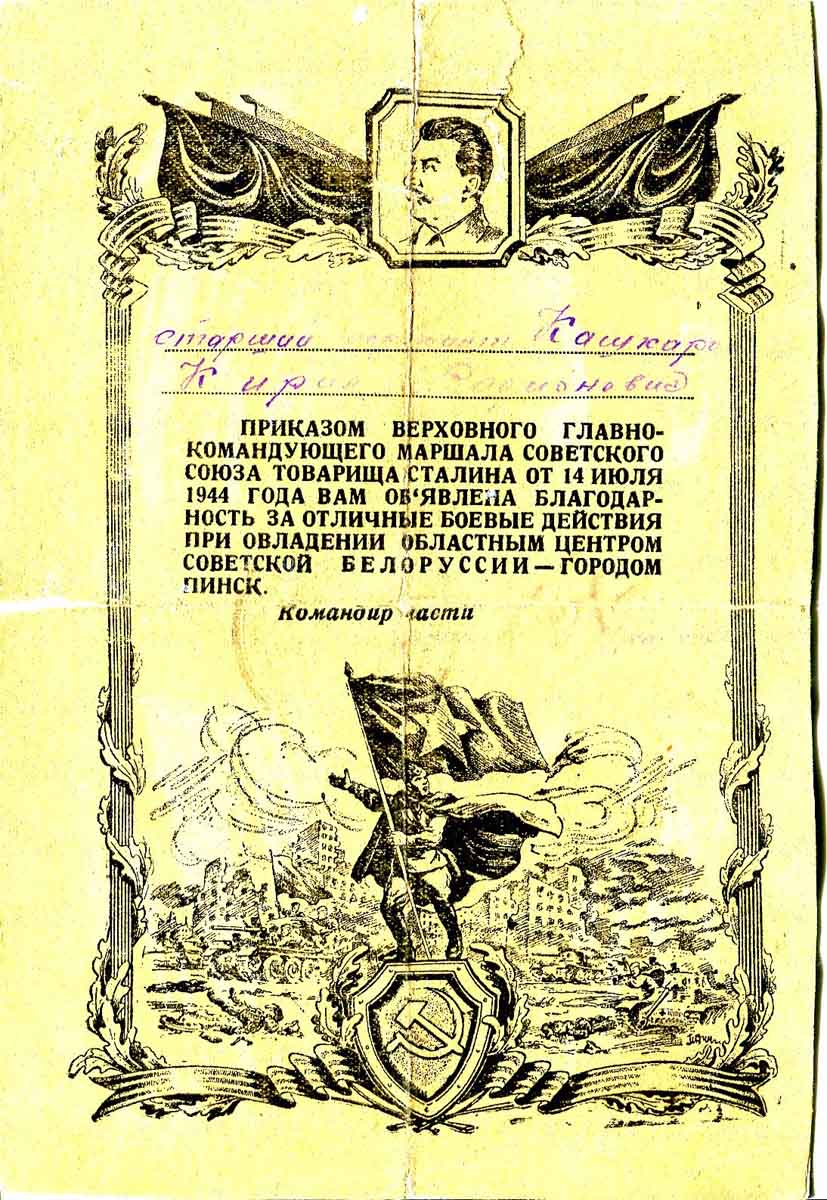 старший сержант Кашкаро
Кирил
ПРИКАЗОМ ВЕРХОВНОГО ГЛАВНО-
КОМАНДУЮЩЕГО МАРШАЛА СОВЕТСКОГО
СОЮЗА ТОВАРИЩА СТАЛИНА ОТ 14 ИЮЛЯ
1944 ГОДА ВАМ ОБ‘ЯВЛЕНА БЛАГОДАР-
НОСТЬ ЗА ОТЛИЧНЫЕ БОЕВЫЕ ДЕЙСТВИЯ
ПРИ ОВЛАДЕНИИ ОБЛАСТНЫМ ЦЕНТРОМ
СОВЕТСКОЙ БЕЛОРУССИИ—ГОРОДОМ
ПИНСК.
Командир части